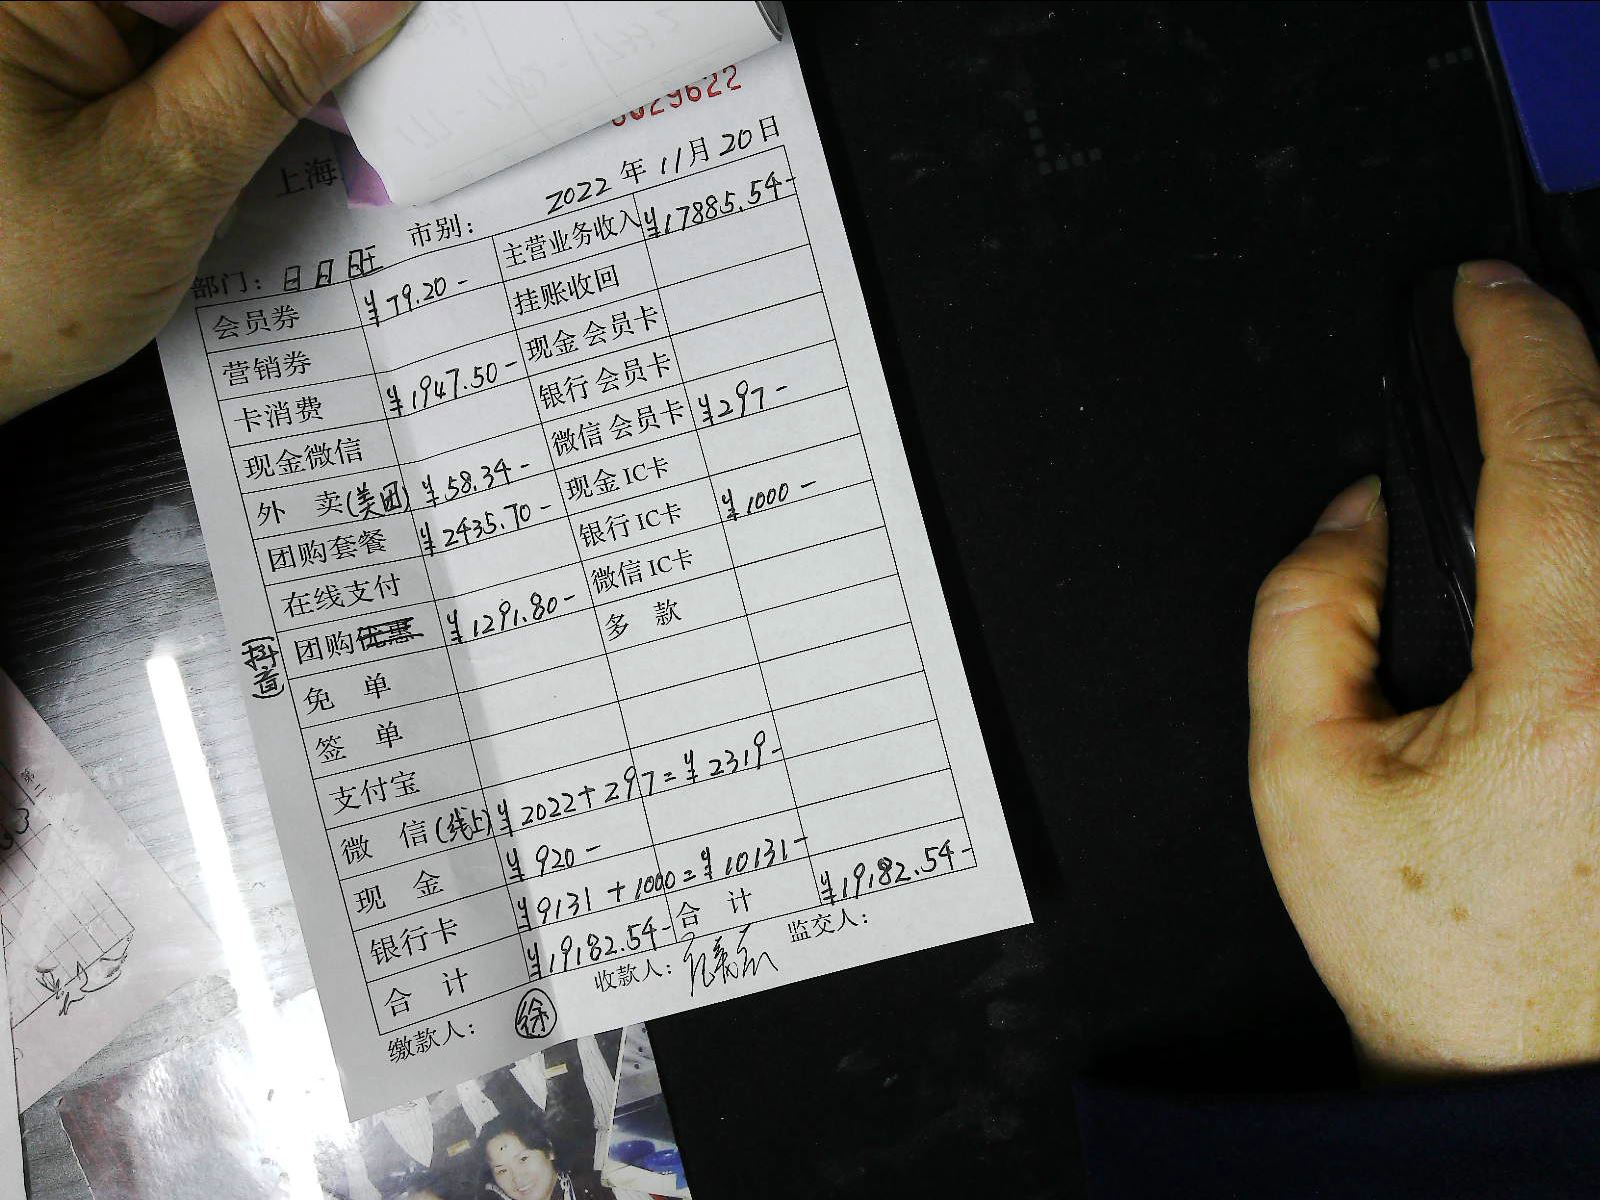 0029622
上海
2022 年 11 月 20 日
部门: 日日旺 市别:
会员券 ¥79.20- 主营业务收入 ¥17885.54-
营销券 挂账收回
卡消费 ¥1947.50- 现金 会员卡
现金微信 银行 会员卡
外 卖(美团) ¥58.34- 微信 会员卡 ¥297-
团购套餐 ¥2435.70- 现金 IC卡
在线支付 银行 IC卡 ¥1000-
(抖音) 团购优惠 ¥1291.80- 微信 IC卡
免 单 多 款
签 单
支付宝
微 信(线上) ¥2022+297=¥2319-
现 金 ¥920-
银行卡 ¥9131+1000=¥10131-
合 计 ¥19182.54- 合 计 ¥19182.54-
缴款人: 徐 收款人: 监交人:
第二